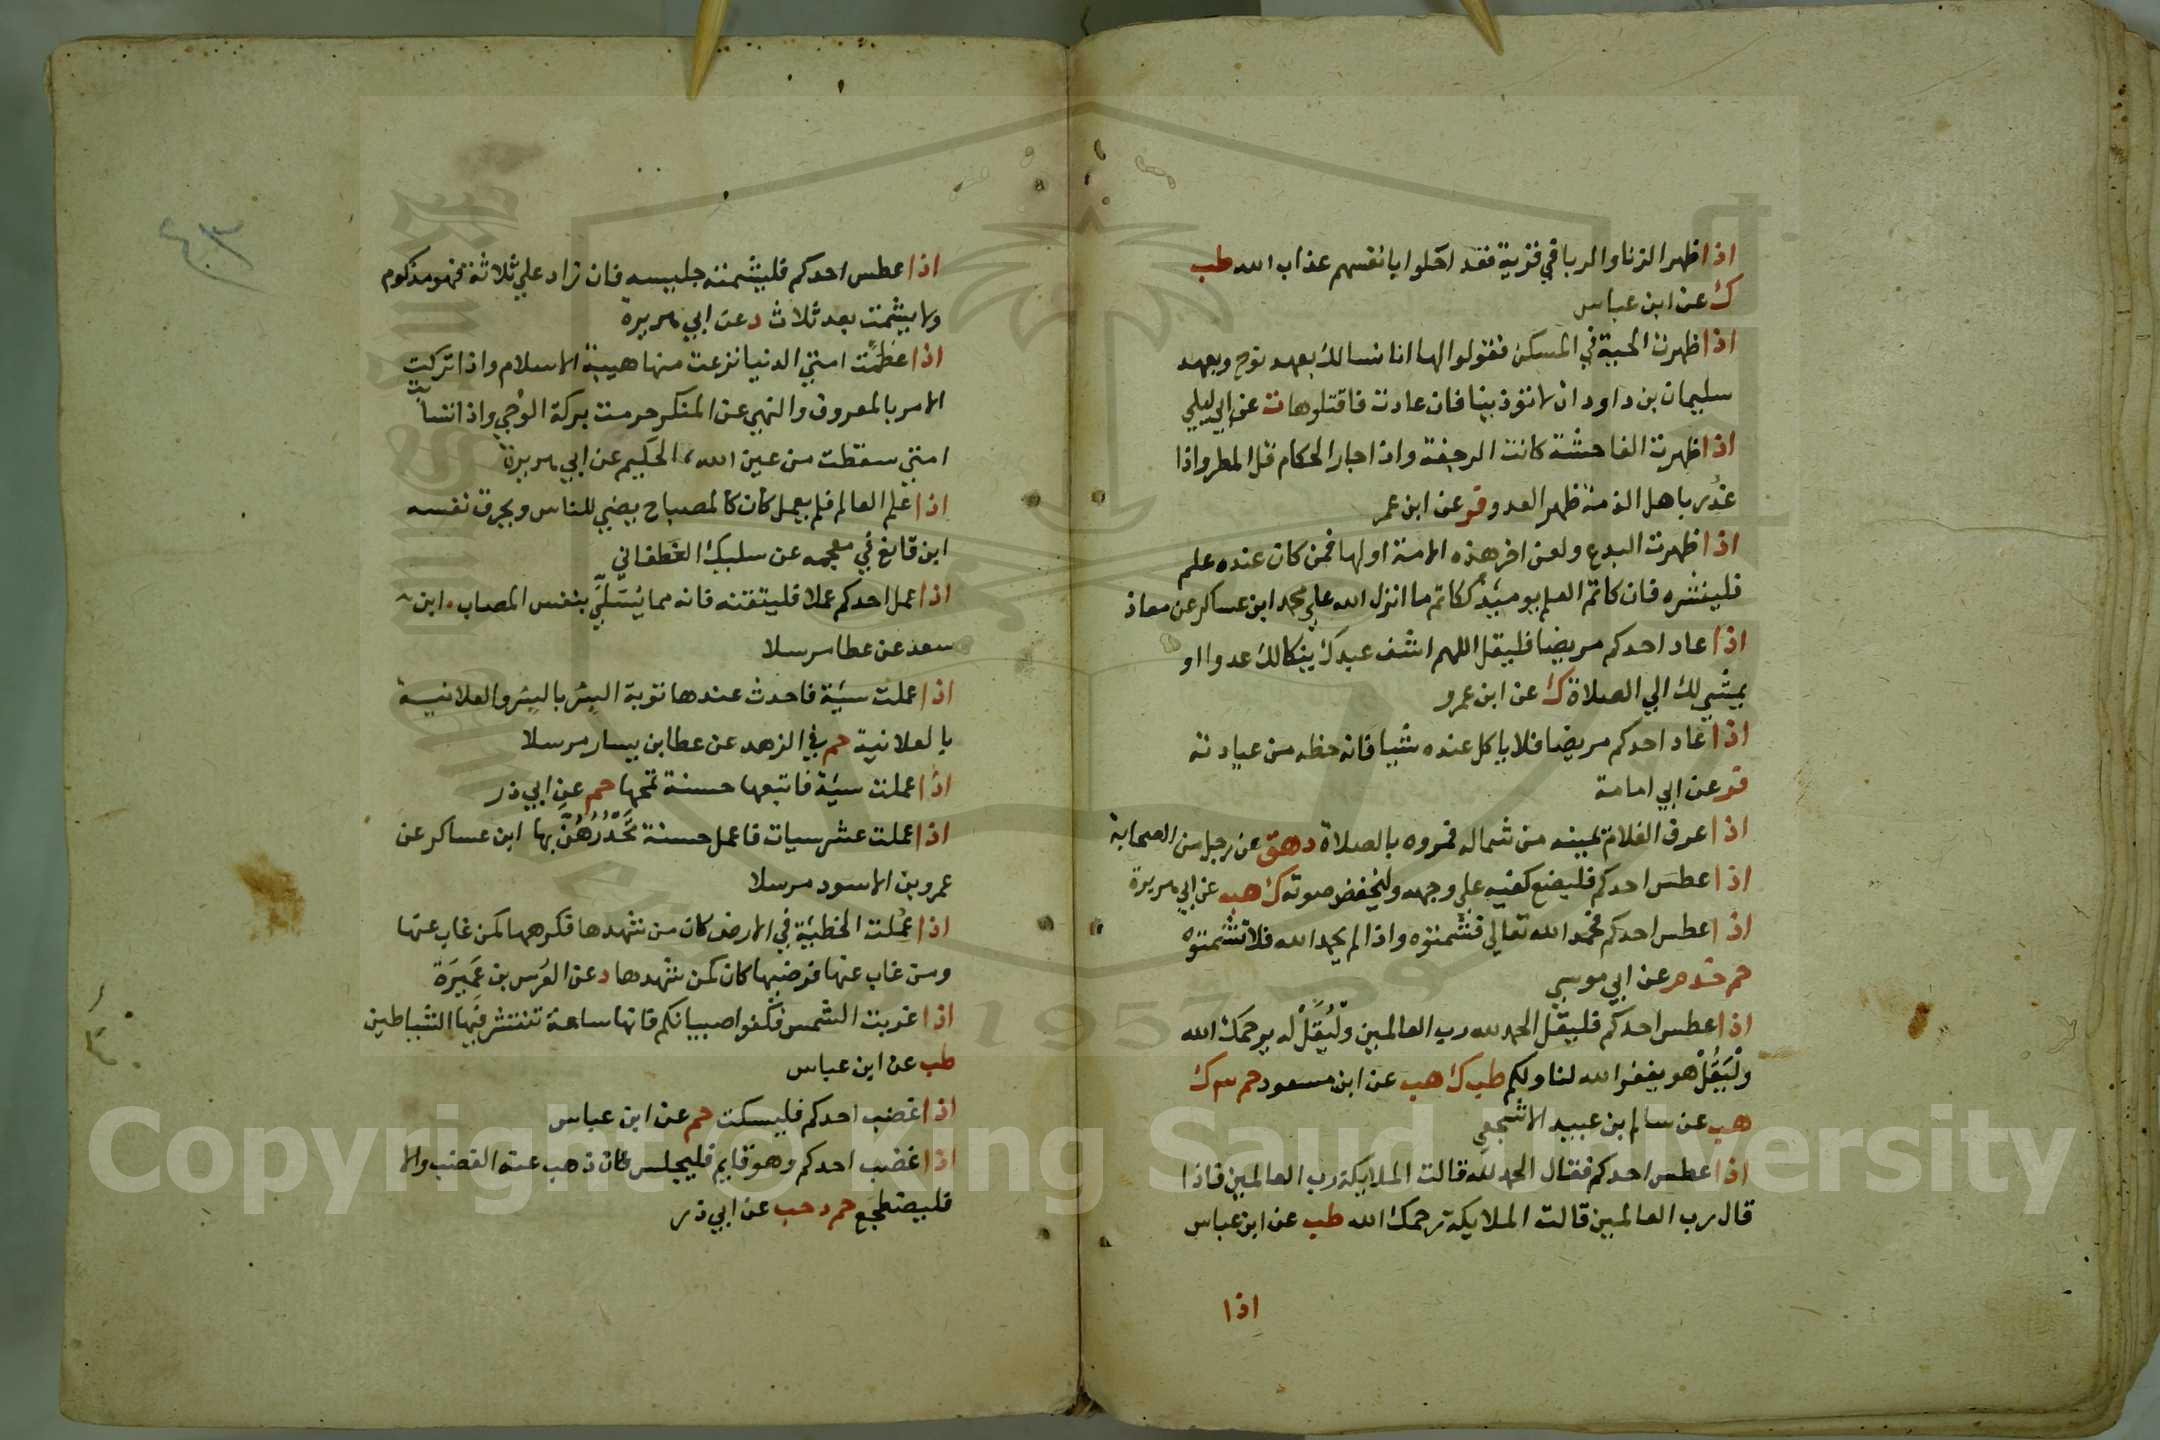 اذا ظهر الزنا والربا في قرية فقد احلوا بانفسهم عذاب الله طب
ك عن ابن عباس
اذا ظهرت الحية في المسكن فقولوا لها انا نسالك بعهد نوح وبعهد
سليمان بن داود ان لا تؤذينا فان عادت فاقتلوها ت عن ابي ليلي
اذا ظهرت الفاحشة كانت الرجفة واذا جار الحكام قل المطر واذا
غدر باهل الذمة ظهر العدو فر عن ابن عمر
اذا ظهرت البدع ولعن اخر هذه الامة اولها فمن كان عنده علم
فلينشره فان كاتم العلم يومئذ ككاتم ما انزل الله علي محمد ابن عساكر عن معاذ
اذا عاد احدكم مريضا فليقل اللهم اشف عبدك ينكا لك عدوا او
يمشي لك الي الصلاة ك عن ابن عمرو
اذا عاد احدكم مريضا فلا ياكل عنده شيا فانه حظه من عيادته
فر عن ابي امامة
اذا عرف الغلام يمينه من شماله فمروه بالصلاة د هق عن رجل من الصحابة
اذا عطس احدكم فليضع كفيه علي وجهه وليخفض صوته ك هب عن ابي هريرة
اذا عطس احدكم فحمد الله تعالي فشمتوه واذا لم يحمد الله فلا تشمتوه
حم خد م عن ابي موسي
اذا عطس احدكم فليقل الحمد لله رب العالمين وليقل له يرحمك الله
وليقل هو يغفر الله لنا ولكم طب ك هب عن ابن مسعود حم ٣ ك
هب عن سالم بن عبيد الاشجعي
اذا عطس احدكم فقال الحمد لله قالت الملايكة رب العالمين فاذا
قال رب العالمين قالت الملايكة رحمك الله طب عن ابن عباس
اذا
٤٣
اذا عطس احدكم فليشمته جليسه فان زاد علي ثلاثة فهو مزكوم
ولا يشمت بعد ثلاث د عن ابي هريرة
اذا عظمت امتي الدنيا نزعت منها هيبة الاسلام واذا تركت
الامر بالمعروف والنهي عن المنكر حرمت بركة الوحي واذا تسابت
امتي سقطت من عين الله الحكيم عن ابي هريرة
اذا علم العالم فلم يعمل كان كالمصباح يضي للناس ويحرق نفسه
ابن قانع في معجمه عن سليك الغطفاني
اذا عمل احدكم عملا فليتقنه فانه مما يسلي بنفس المصاب ابن
سعد عن عطا مرسلا
اذا عملت سيئة فاحدث عندها توبة السر بالسر والعلانية
بالعلانية حم في الزهد عن عطا بن يسار مرسلا
اذا عملت سيئة فاتبعها حسنة تمحها حم عن ابي ذر
اذا عملت عشر سيات فاعمل حسنة تحدرهن بها ابن عساكر عن
عمرو بن الاسود مرسلا
اذا عملت الخطيئة في الارض كان من شهدها فكرهها كمن غاب عنها
ومن غاب عنها فرضيها كان كمن شهدها د عن العرس بن عميرة
اذا غربت الشمس فكفوا صبيانكم فانها ساعة تنتشر فيها الشياطين
طب عن ابن عباس
اذا غضب احدكم فليسكت حم عن ابن عباس
اذا غضب احدكم وهو قايم فليجلس فان ذهب عنه الغضب والا
فليضطجع حم د حب عن ابي ذر
1957
Copyright © King Saud University